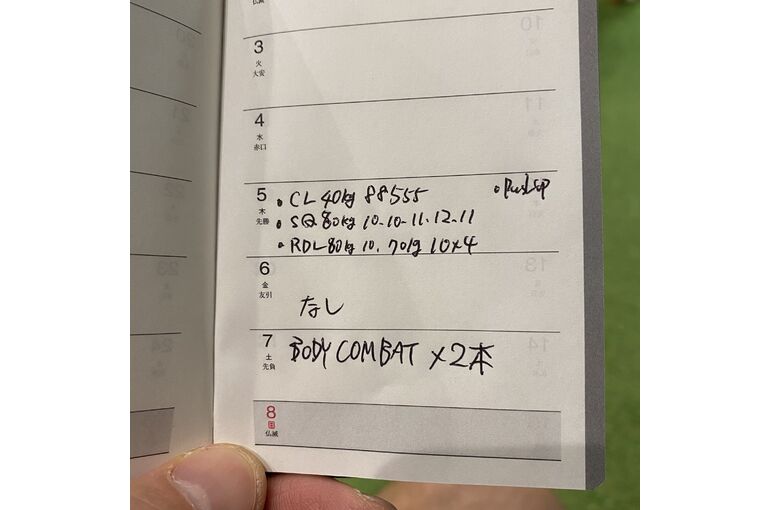 仏滅
3
火
大安
4
水
赤口
5
木
先勝
• CL 40kg 88555
• Push UP
• SQ 80kg 10.10.11.12.11
• RDL 80kg 10. 70kg 10×4
6
金
友引
なし
7
土
先負
BODY COMBAT ×2本
8
日
仏滅